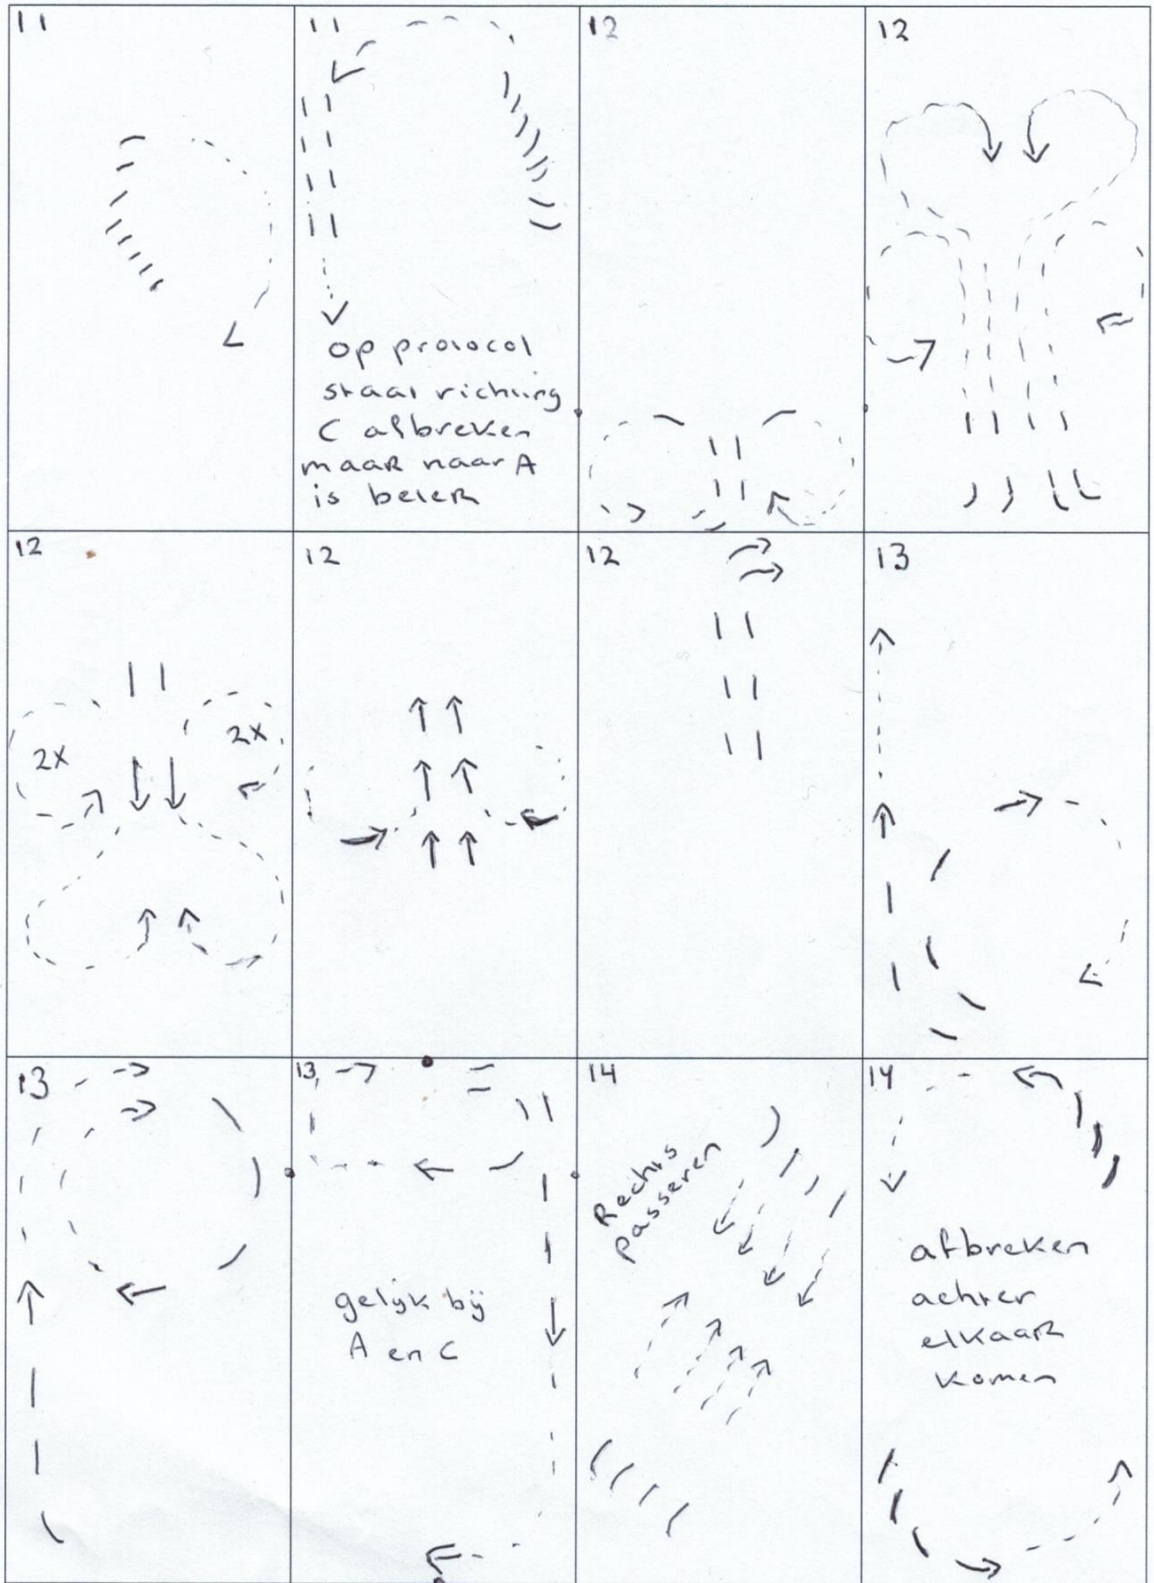 11
11
op protocol
staat richting
C afbreken
maar naar A
is beter
12
12
12
2x
2x
12
12
13
13
13
gelijk bij
A en C
14
Rechts
passeren
14
afbreken
achter
elkaar
komen